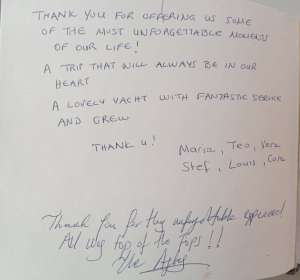 THANK YOU FOR OFFERING US SOME
OF THE MOST UNFORGETTABLE MOMENTS
OF OUR LIFE!
A TRIP THAT WILL ALWAYS BE IN OUR
HEART
A LOVELY YACHT WITH FANTASTIC SERVICE
AND CREW
THANK U!
Maria, Teo, Vera
Stef, Louis,
Thank You for the unforgettable experience!
All way top of the Tops!!
The